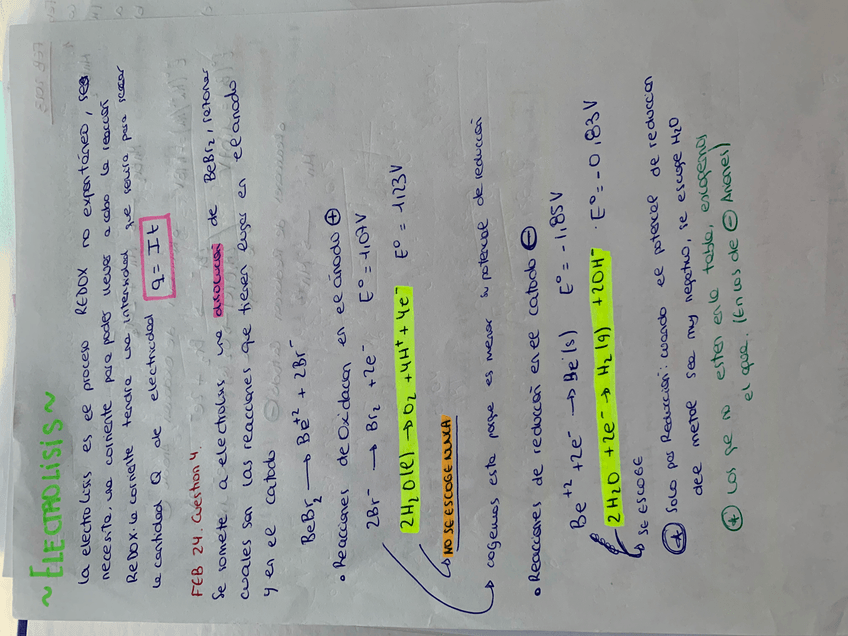 ~ ELECTROLISIS ~
La electrolisis es el proceso REDOX no espontáneo, se
necesita una corriente para poder llevar a cabo la reacción
REDOX. la corriente tendra una intensidad que servira para
la cantidad Q de electricidad q = It
FEB 24. Cuestion 4.
Se somete a electrolisis una disolución de BeBr₂, razonar
cuales son las reacciones que tienen lugar en el ánodo
y en el catodo
BeBr₂ → Be⁺² + 2Br⁻
• Reacciones de Oxidacion en el ánodo ⊕
2Br⁻ → Br₂ + 2e⁻ E° = 1,07V
2H₂O(l) → O₂ + 4H⁺ + 4e⁻ E° = 1,23V
↳ NO SE ESCOGE NUNCA
↳ cogemos esta porque es menor su potencial de reducción
• Reacciones de reducción en el catodo ⊖
Be⁺² + 2e⁻ → Be(s) E° = -1,85V
2H₂O + 2e⁻ → H₂(g) + 2OH⁻ · E° = -0,83V
↳ SE ESCOGE
Solo pas Reducción: cuando el potencial de reducción
del metal sea muy negativo, se escoge H₂O
Los que no esten en la tabla, escogemos
el agua. (En los de ⊖ Aniones)